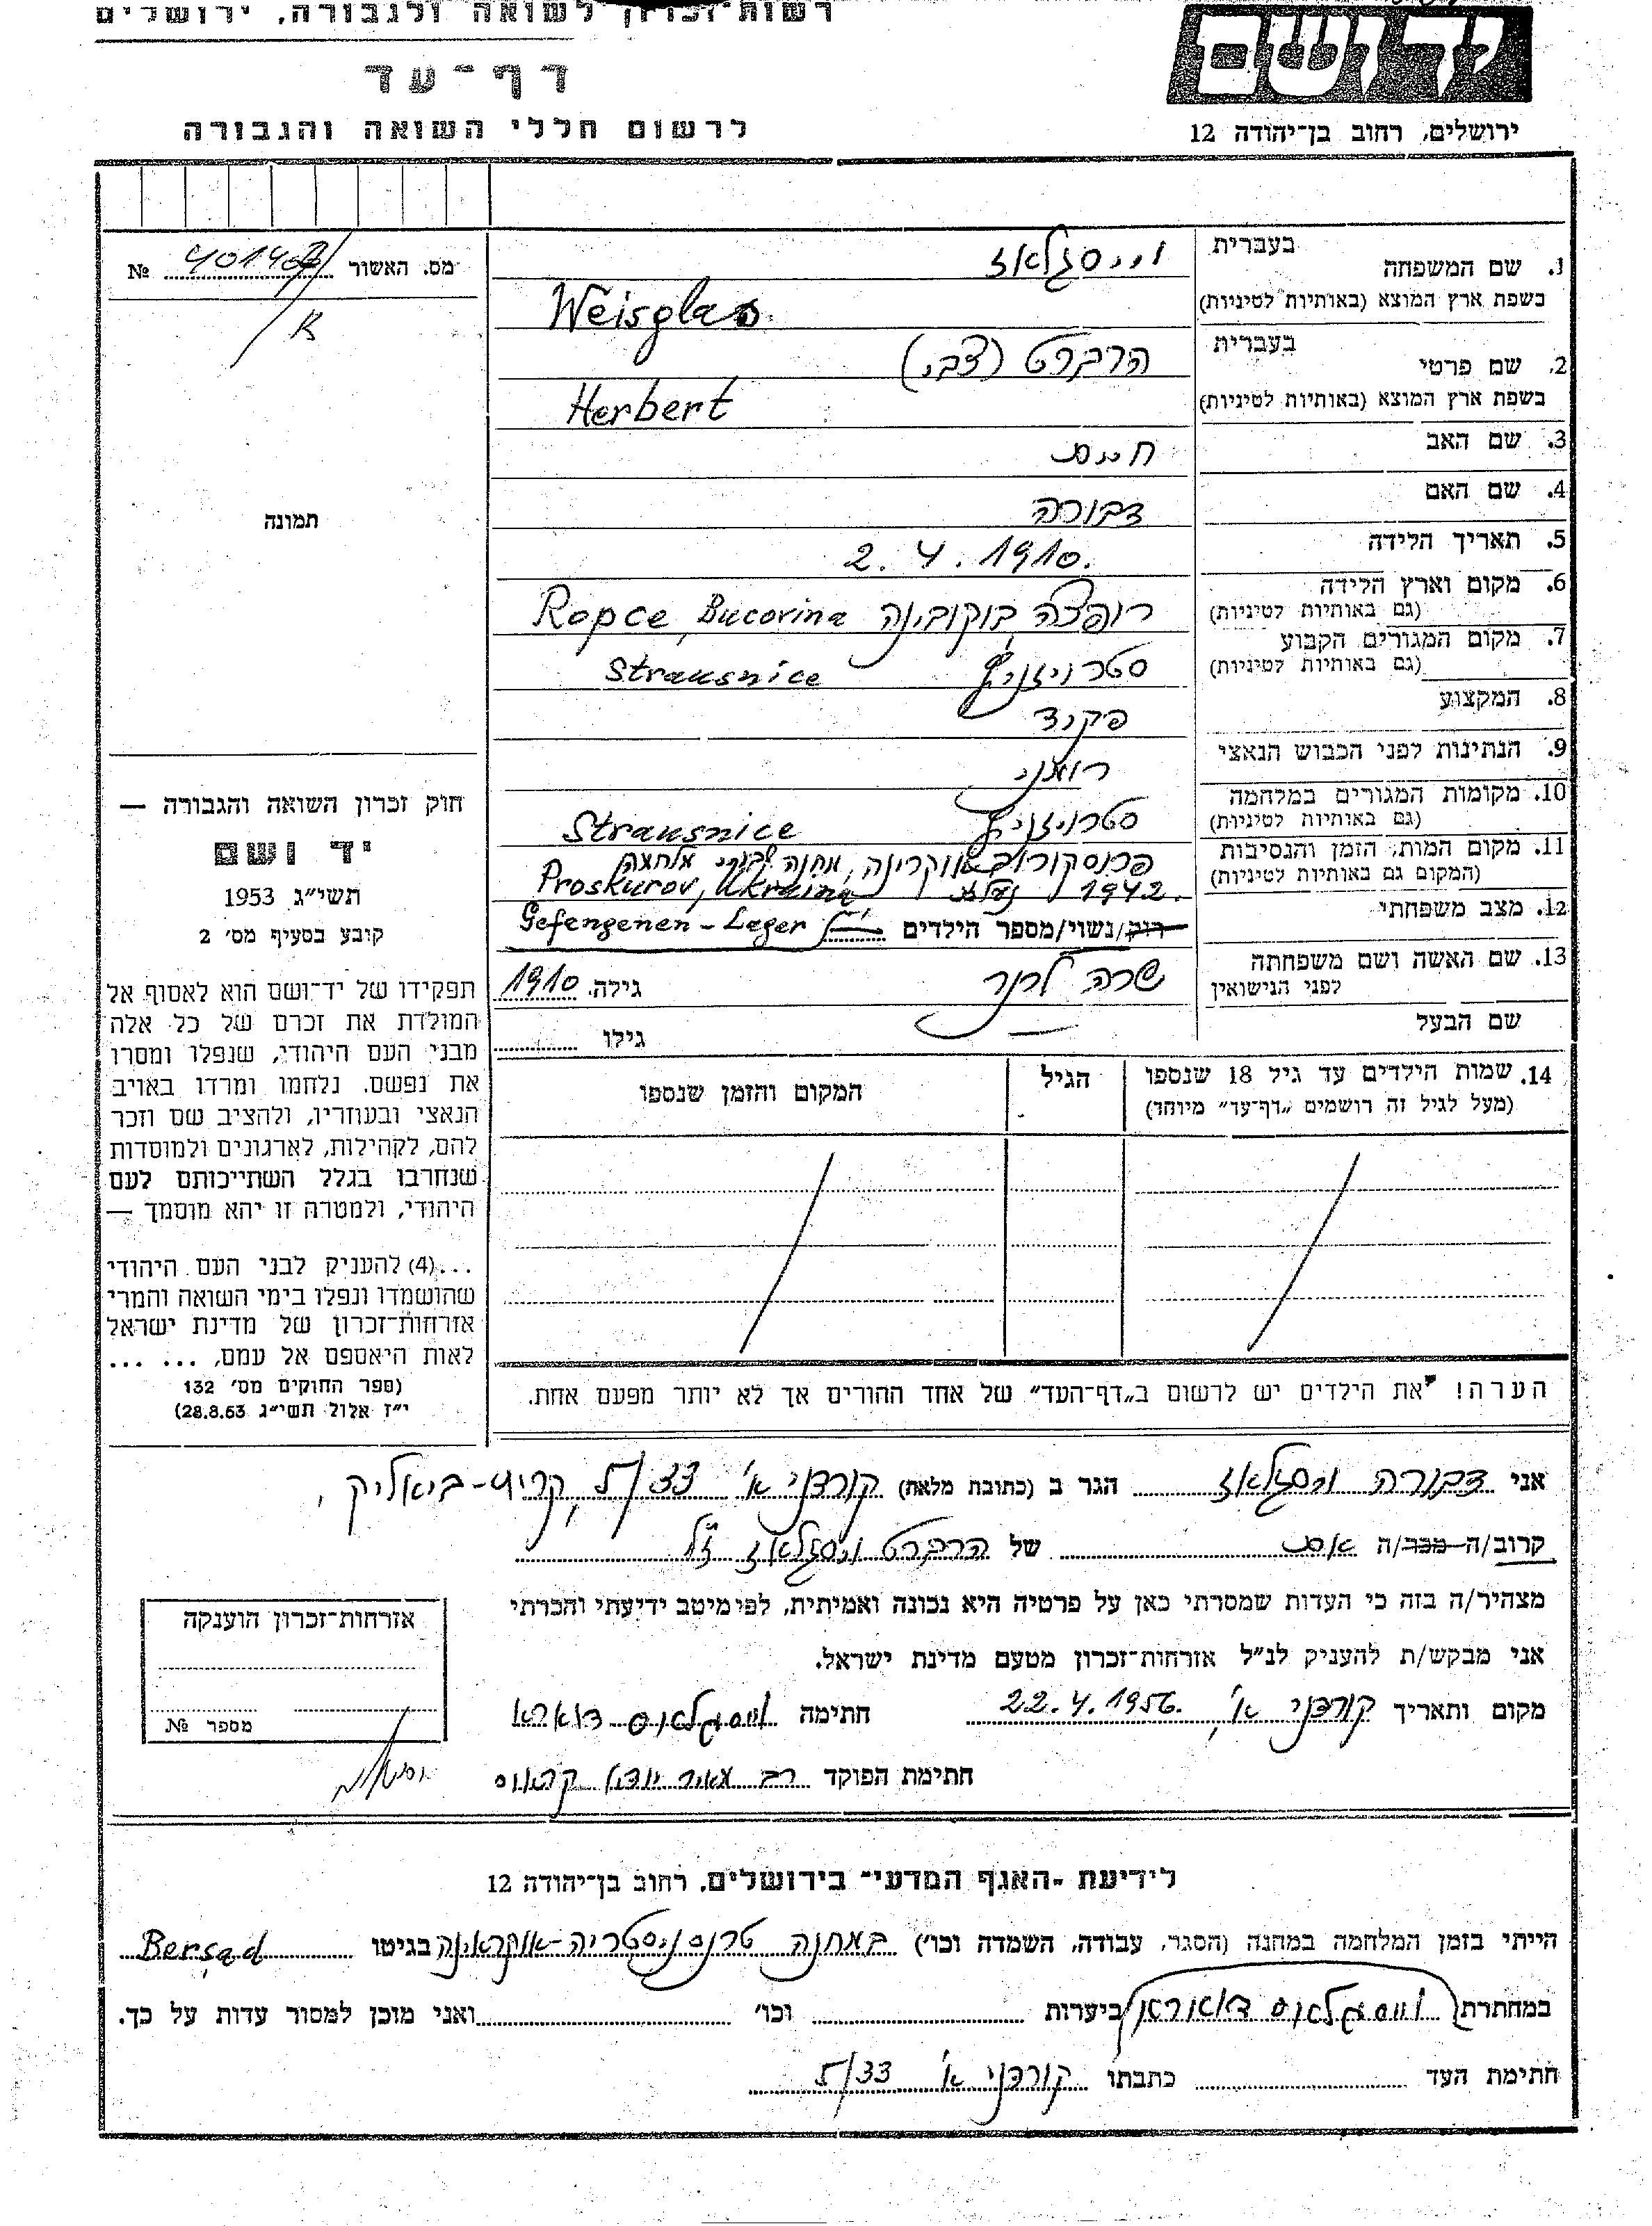 רשות־זכרון לשואה ולגבורה, ירושלים
יד ושם
דף־עד
לרשום חללי השואה והגבורה
ירושלים, רחוב בן־יהודה 12
מס. האשור №
תמונה
חוק זכרון השואה והגבורה —
יד ושם
תשי״ג 1953
קובע בסעיף מס׳ 2
תפקידו של יד־ושם הוא לאסוף אל
המולדת את זכרם של כל אלה
מבני העם היהודי, שנפלו ומסרו
את נפשם. נלחמו ומרדו באויב
הנאצי ובעוזריו, ולהציב שם וזכר
להם, לקהילות, לארגונים ולמוסדות
שנחרבו בגלל השתייכותם לעם
היהודי, ולמטרה זו יהא מוסמך —
...(4) להעניק לבני העם היהודי
שהושמדו ונפלו בימי השואה והמרי
אזרחות־זכרון של מדינת ישראל
לאות היאספם אל עמם, ... ...
(ספר החוקים מס׳ 132
י״ז אלול תשי״ג 28.8.53)
1. שם המשפחה בעברית וייסגלאז
בשפת ארץ המוצא (באותיות לטיניות) Weisglas
2. שם פרטי בעברית הרברט (צבי)
בשפת ארץ המוצא (באותיות לטיניות) Herbert
3. שם האב חיים
4. שם האם דבורה
5. תאריך הלידה 2.4.1910.
6. מקום וארץ הלידה רופצה בוקובינה Ropce, Bucovina
(גם באותיות לטיניות)
7. מקום המגורים הקבוע Strausnice
(גם באותיות לטיניות)
8. המקצוע פקיד
9. הנתינות לפני הכבוש הנאצי רומני
10. מקומות המגורים במלחמה Strausnice
(גם באותיות לטיניות)
11. מקום המות, הזמן והנסיבות פרוסקורוב אוקרינה, מחנה שבויי מלחמה
(המקום גם באותיות לטיניות) 1942. Proskurov, Ukraina
Gefengenen-Leger
12. מצב משפחתי רוק/נשוי/מספר הילדים
13. שם האשה ושם משפחתה שרה לרנר גילה. 1910
לפני הנישואין
שם הבעל — גילו
14. שמות הילדים עד גיל 18 שנספו הגיל המקום והזמן שנספו
(מעל לגיל זה רושמים „דף־עד״ מיוחד)
הערה! את הילדים יש לרשום ב„דף־העד״ של אחד ההורים אך לא יותר מפעם אחת.
אני דבורה ויסגלאז הגר ב (כתובת מלאה) קורדני א׳ 33/5, קרית-ביאליק,
קרוב/ה מכר/ה אם של הרברט ויסגלאז ז״ל
מצהיר/ה בזה כי העדות שמסרתי כאן על פרטיה היא נכונה ואמיתית, לפי מיטב ידיעתי והכרתי
אני מבקש/ת להעניק לנ״ל אזרחות־זכרון מטעם מדינת ישראל.
מקום ותאריך קורדני א׳, 22.4.1956. חתימה ווייסגלאס דאורא
חתימת הפוקד
אזרחות־זכרון הוענקה
מספר №
לידיעת „האגף המדעי״ בירושלים, רחוב בן־יהודה 12
הייתי בזמן המלחמה במחנה (הסגר, עבודה, השמדה וכו׳) במחנה טרנסניסטריה-אוקראינה בגיטו Berşad
במחתרת ביערות וכו׳ ואני מוכן למסור עדות על כך.
חתימת העד כתבתו קורדני א׳ 33/5